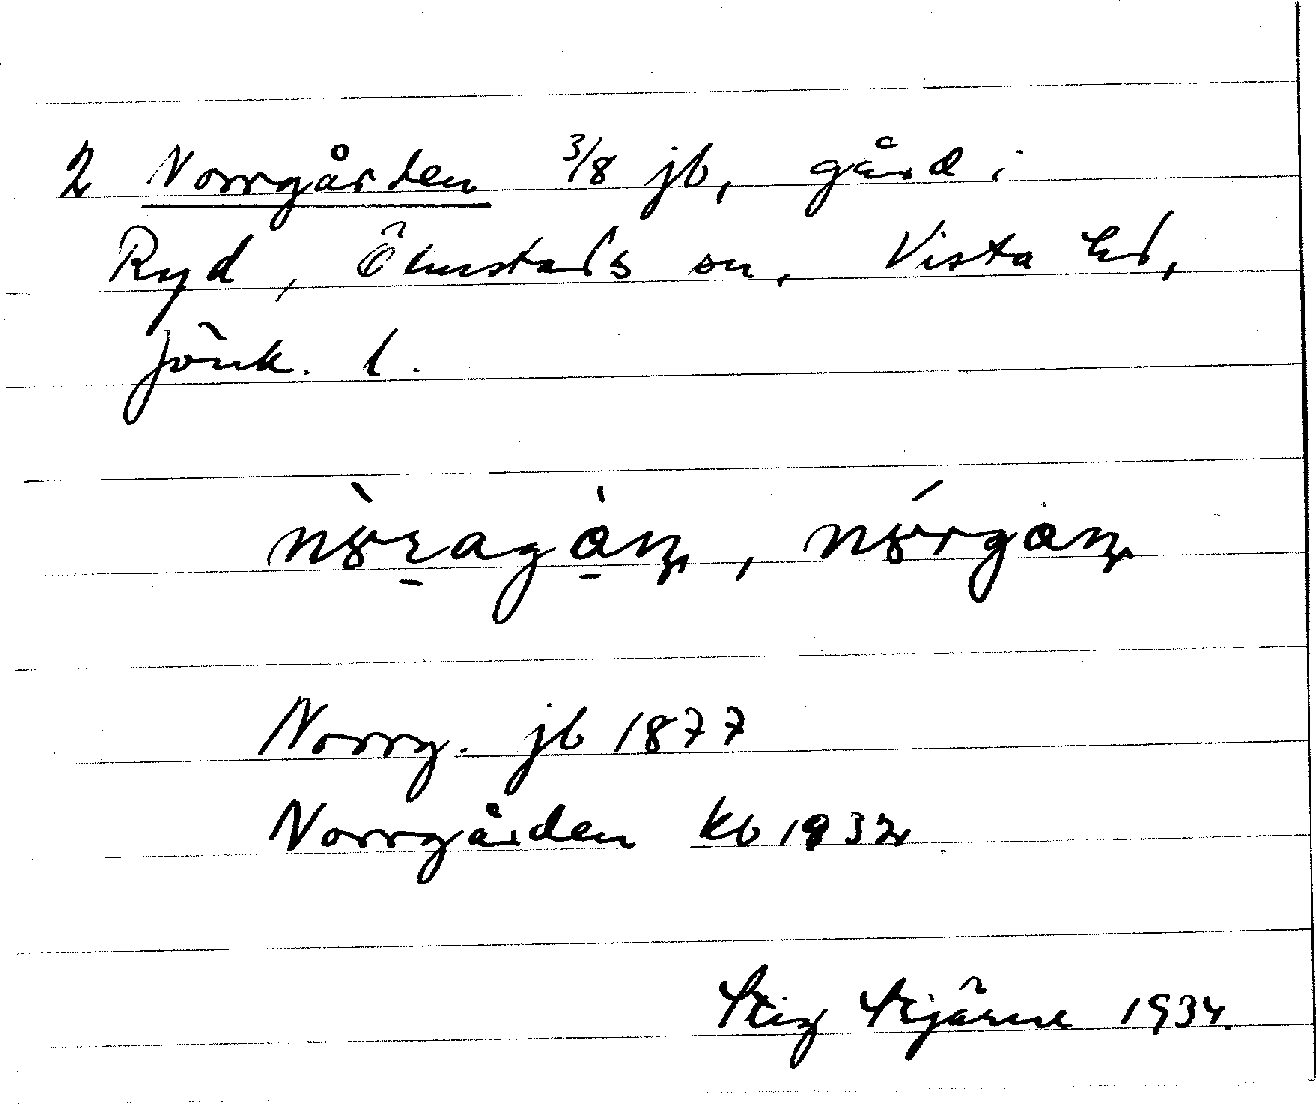 2 Norrgården 3/8 jb, gård i
Ryd, Ölmstads sn, Vista hd,
Jönk. l.
Norrg. jb 1877
Norrgården kb 1932
Stig Stjärne 1934.